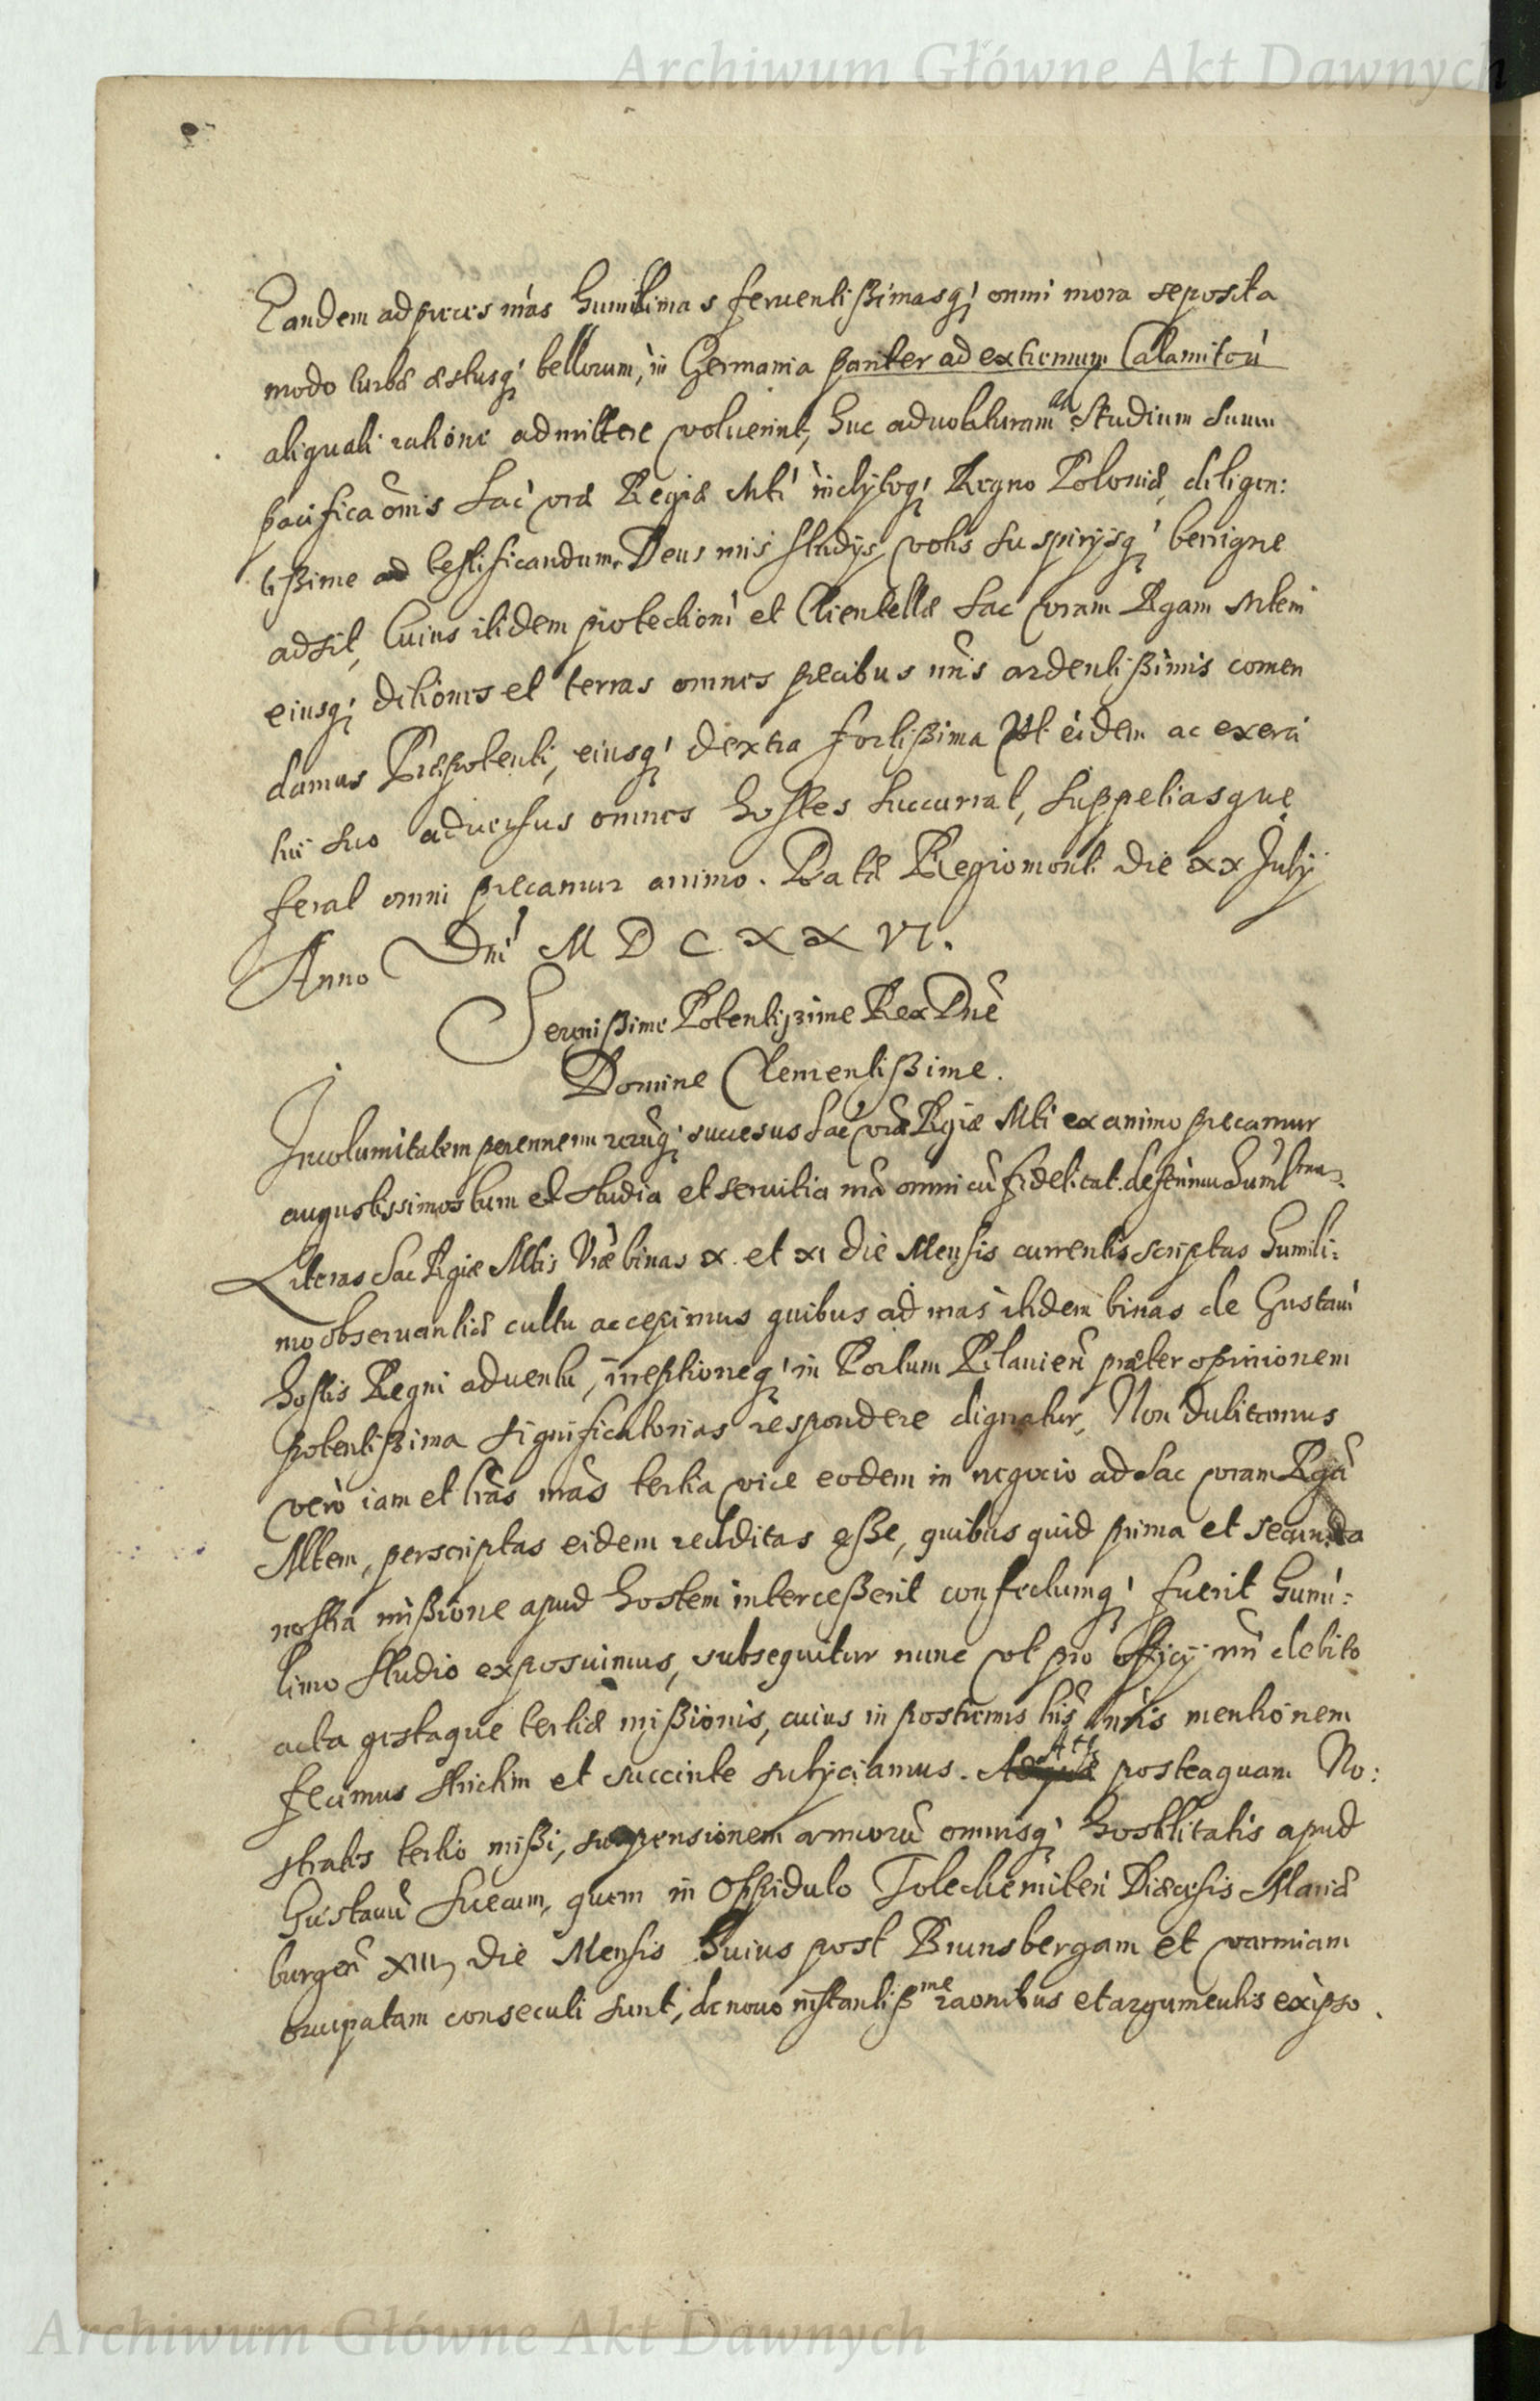 Archiwum Główne Akt Dawnych
Eandem ad preces nr̃as humilimas feruentißimasq; omni mora seposita
modo turbæ æstusq; bellorum, in Germania pariter ad extremum Calamitoru
aliquali ratione admittere voluerint, huc aduolaturam ad studium suum
pacificaõnis Sac vr̃æ Regiæ Mti inclytoq; Regno Poloniæ, diligen:
tißime ad testificandum. Deus nr̃is studijs, votis suspirijsq; benigne
adsit, Cuius itidem protectioni et Clientellæ Sac vram Rgam Mtem
eiusq; ditiones et terras omnes precibus nr̃is ardentißimis comen
damus Præpotenti, eiusq; dextra fortißima Vt eidem ac exerci
tui suo aduersus omnes hostes succurrat, suppetiasque
ferat omni precamur animo. Datæ Regiomonti die xx July
Anno Dni M D C X X VI.
Serenißime Potentißime Rex Dnẽ
Domine Clementißime.
Incolumitatem perennem rerũq; succesus Sac vræ Rgiæ Mti ex animo precamur
augustissimos tum et studia et seruitia nr̃a omni cũ fidelitat. deferimus humlma.
Literas Sac Rgiæ Mtis Vræ binas x. et xi die Mensis currentis scriptas humili:
mo obseruantiæ cultu accepimus quibus ad nras itidem binas de Gustaui
hostis Regni aduentu, irreptioneq; in Portum Pilauien̄ præter opinionem
potentißima significatorias respondere dignatur, Non dubitamus
vero iam et lr̃as nr̃as tertia vice eodem in negocio ad Sac vram Rgã
Mtem, perscriptas eidem redditas eße, quibus quid prima et secunda
nostra mißione apud hostem interceßerit confectumq; fuerit humi:
limo studio exposuimus, subsequitur nunc vt pro officij nr̃i debito
acta gestaque tertiæ mißionis, cuius in postremis lr̃is nr̃is mentionem
fecimus strictim et succinte subijciamus. Atq; posteaquam No:
strates tertio mißi, suspensionem armorũ omnisq; hostilitatis apud
Gustauũ Suecum, quem in Oppidulo Tolckemiten̄ Diæcesis Mariæ
burgen̄ XIII die Mensis huius post Brunsbergam et varmiam
occupatam consecuti sunt, de nouo instantißme raonibus et argumentis ex ipso
Archiwum Główne Akt Dawnych